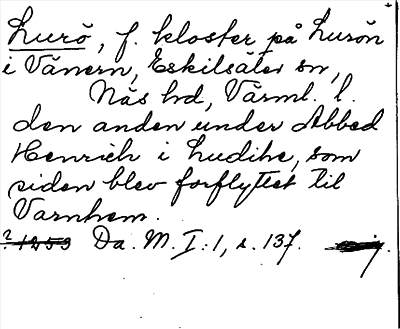 Lurö, f. kloster på Lurön
i Vänern, Eskilsäter sn,
Näs hd, Värml. l.
den anden under Abbed
Henrich i Ludihe, som
siden blev forflyttet til
Varnhem.
? 1253 Da. M. I:1, s. 137.